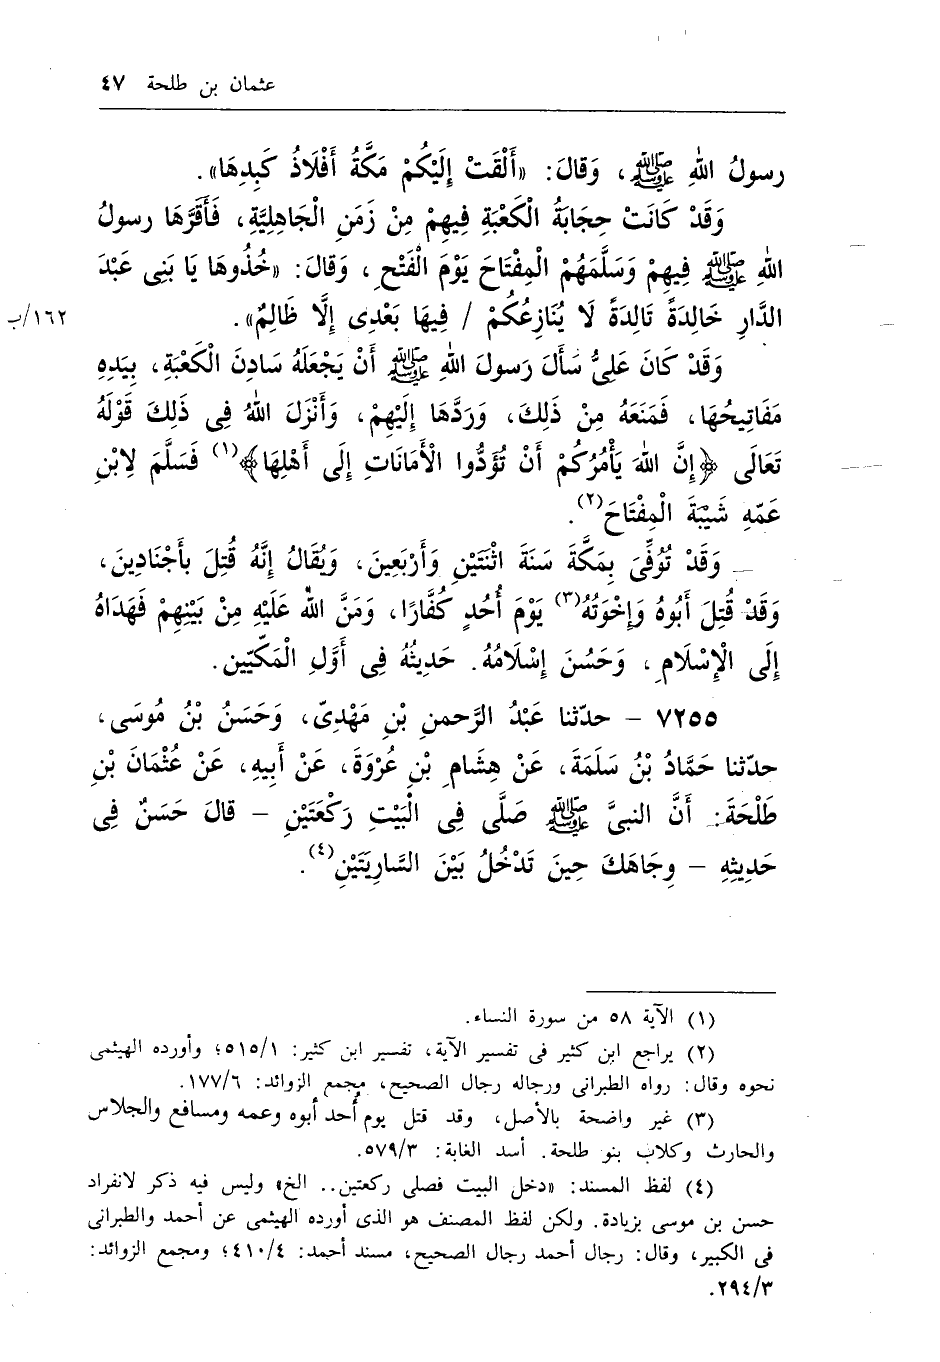 عثمان بن طلحة ٤٧
رسولُ اللهِ ﷺ، وَقَالَ: «أَلْقَتْ إِلَيْكُمْ مَكَّةُ أَفْلَاذُ كَبِدِهَا».
وَقَدْ كَانَتْ حِجَابَةُ الْكَعْبَةِ فِيهِمْ مِنْ زَمَنِ الْجَاهِلِيَّةِ، فَأَقَرَّهَا رسولُ
اللهِ ﷺ فِيهِمْ وَسَلَّمَهُمْ الْمِفْتَاحَ يَوْمَ الْفَتْحِ، وَقَالَ: «خُذُوهَا يَا بَنِى عَبْدَ
الدَّارِ خَالِدَةً تَالِدَةً لَا يُنَازِعُكُمْ / فِيهَا بَعْدِى إِلَّا ظَالِمٌ».
١٦٢/ب
وَقَدْ كَانَ عَلِىُّ سَأَلَ رَسولَ اللهِ ﷺ أَنْ يَجْعَلَهُ سَادِنَ الْكَعْبَةِ، بِيَدِهِ
مَفَاتِيحُهَا، فَمَنَعَهُ مِنْ ذَلِكَ، وَرَدَّهَا إِلَيْهِمْ، وَأَنْزَلَ اللهُ فِى ذَلِكَ قَوْلَهُ
تَعَالَى ﴿إِنَّ اللهَ يَأْمُرُكُمْ أَنْ تُؤَدُّوا الْأَمَانَاتِ إِلَى أَهْلِهَا﴾(١) فَسَلَّمَ لِابْنِ
عَمّهِ شَيْبَةَ الْمِفْتَاحَ(٢).
وَقَدْ تُوُفِّىَ بِمَكَّةَ سَنَةَ اثْنَتَيْنِ وَأَرْبَعِينَ، وَيُقَالُ إِنَّهُ قُتِلَ بِأَجْنَادِينَ،
وَقَدْ قُتِلَ أَبُوهُ وَإِخْوَتُهُ(٣) يَوْمَ أُحُدٍ كُفَّارًا، وَمَنَّ اللهُ عَلَيْهِ مِنْ بَيْنِهِمْ فَهَدَاهُ
إِلَى الْإِسْلَامِ، وَحَسُنَ إِسْلَامُهُ. حَدِيثُهُ فِى أَوَّلِ الْمَكّيّين.
٧٢٥٥ – حدّثنا عَبْدُ الرَّحمنِ بْنِ مَهْدِىّ، وَحَسَنُ بْنُ مُوسَى،
حدّثنا حَمَّادُ بْنُ سَلَمَةَ، عَنْ هِشَامِ بْنِ عُرْوَةَ، عَنْ أَبِيهِ، عَنْ عُثْمَانَ بْنِ
طَلْحَةَ: أَنَّ النبىَّ ﷺ صَلَّى فِى الْبَيْتِ رَكْعَتَيْنِ – قالَ حَسَنٌ فِى
حَدِيثِهِ – وِجَاهَكَ حِينَ تَدْخُلُ بَيْنَ السَّارِيَتَيْنِ(٤).
(١) الآية ٥٨ من سورة النساء.
(٢) يراجع ابن كثير فى تفسير الآية، تفسير ابن كثير: ٥١٥/١؛ وأورده الهيثمى
نحوه وقال: رواه الطبرانى ورجاله رجال الصحيح، مجمع الزوائد: ١٧٧/٦.
(٣) غير واضحة بالأصل، وقد قتل يوم أُحد أبوه وعمه ومسافع والجلاس
والحارث وكلاب بنو طلحة. أسد الغابة: ٥٧٩/٣.
(٤) لفظ المسند: «دخل البيت فصلى ركعتين.. الخ» وليس فيه ذكر لانفراد
حسن بن موسى بزيادة. ولكن لفظ المصنف هو الذى أورده الهيثمى عن أحمد والطبرانى
فى الكبير، وقال: رجال أحمد رجال الصحيح، مسند أحمد: ٤١٠/٤؛ ومجمع الزوائد:
٢٩٤/٣.